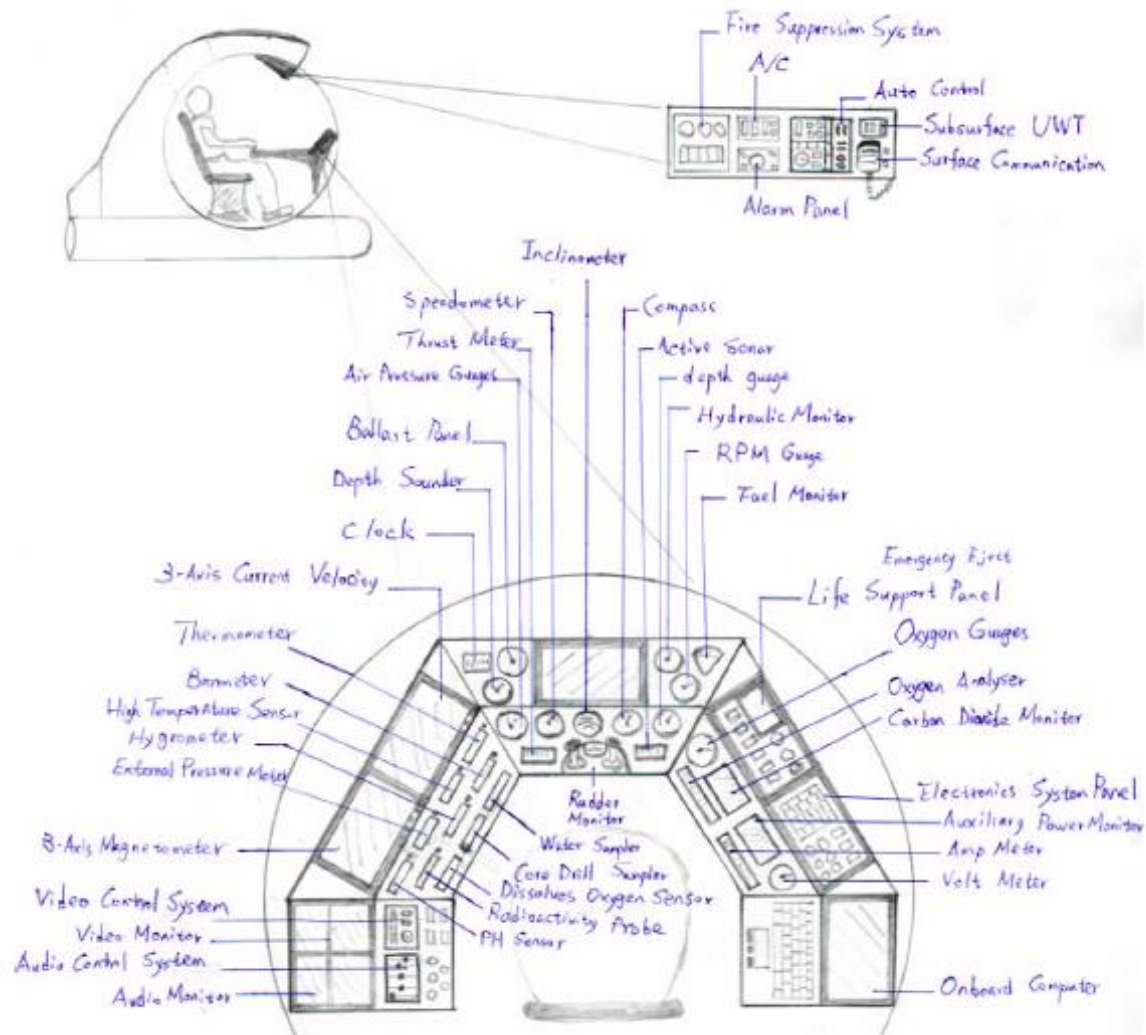 Fire Suppression System
A/C
Auto Control
Subsurface UWT
Surface Communication
Alarm Panel
Inclinometer
Speedometer
Compass
Thrust Meter
Active Sonar
Air Pressure Guages
depth guage
Hydraulic Monitor
Ballast Panel
RPM Guage
Depth Sounder
Fuel Monitor
Clock
Emergency Eject
3-Axis Current Velocity
Life Support Panel
Thermometer
Oxygen Guages
Barometer
Oxygen Analyser
High Temperature Sensor
Carbon Dioxide Monitor
Hygrometer
External Pressure Meter
Electronics System Panel
Rudder
Monitor
Auxiliary Power Monitor
Water Sampler
3-Axis Magnetometer
Amp Meter
Core Drill Sampler
Volt Meter
Dissolves Oxygen Sensor
Video Control System
Radioactivity Probe
Video Monitor
PH Sensor
Audio Control System
Onboard Computer
Audio Monitor